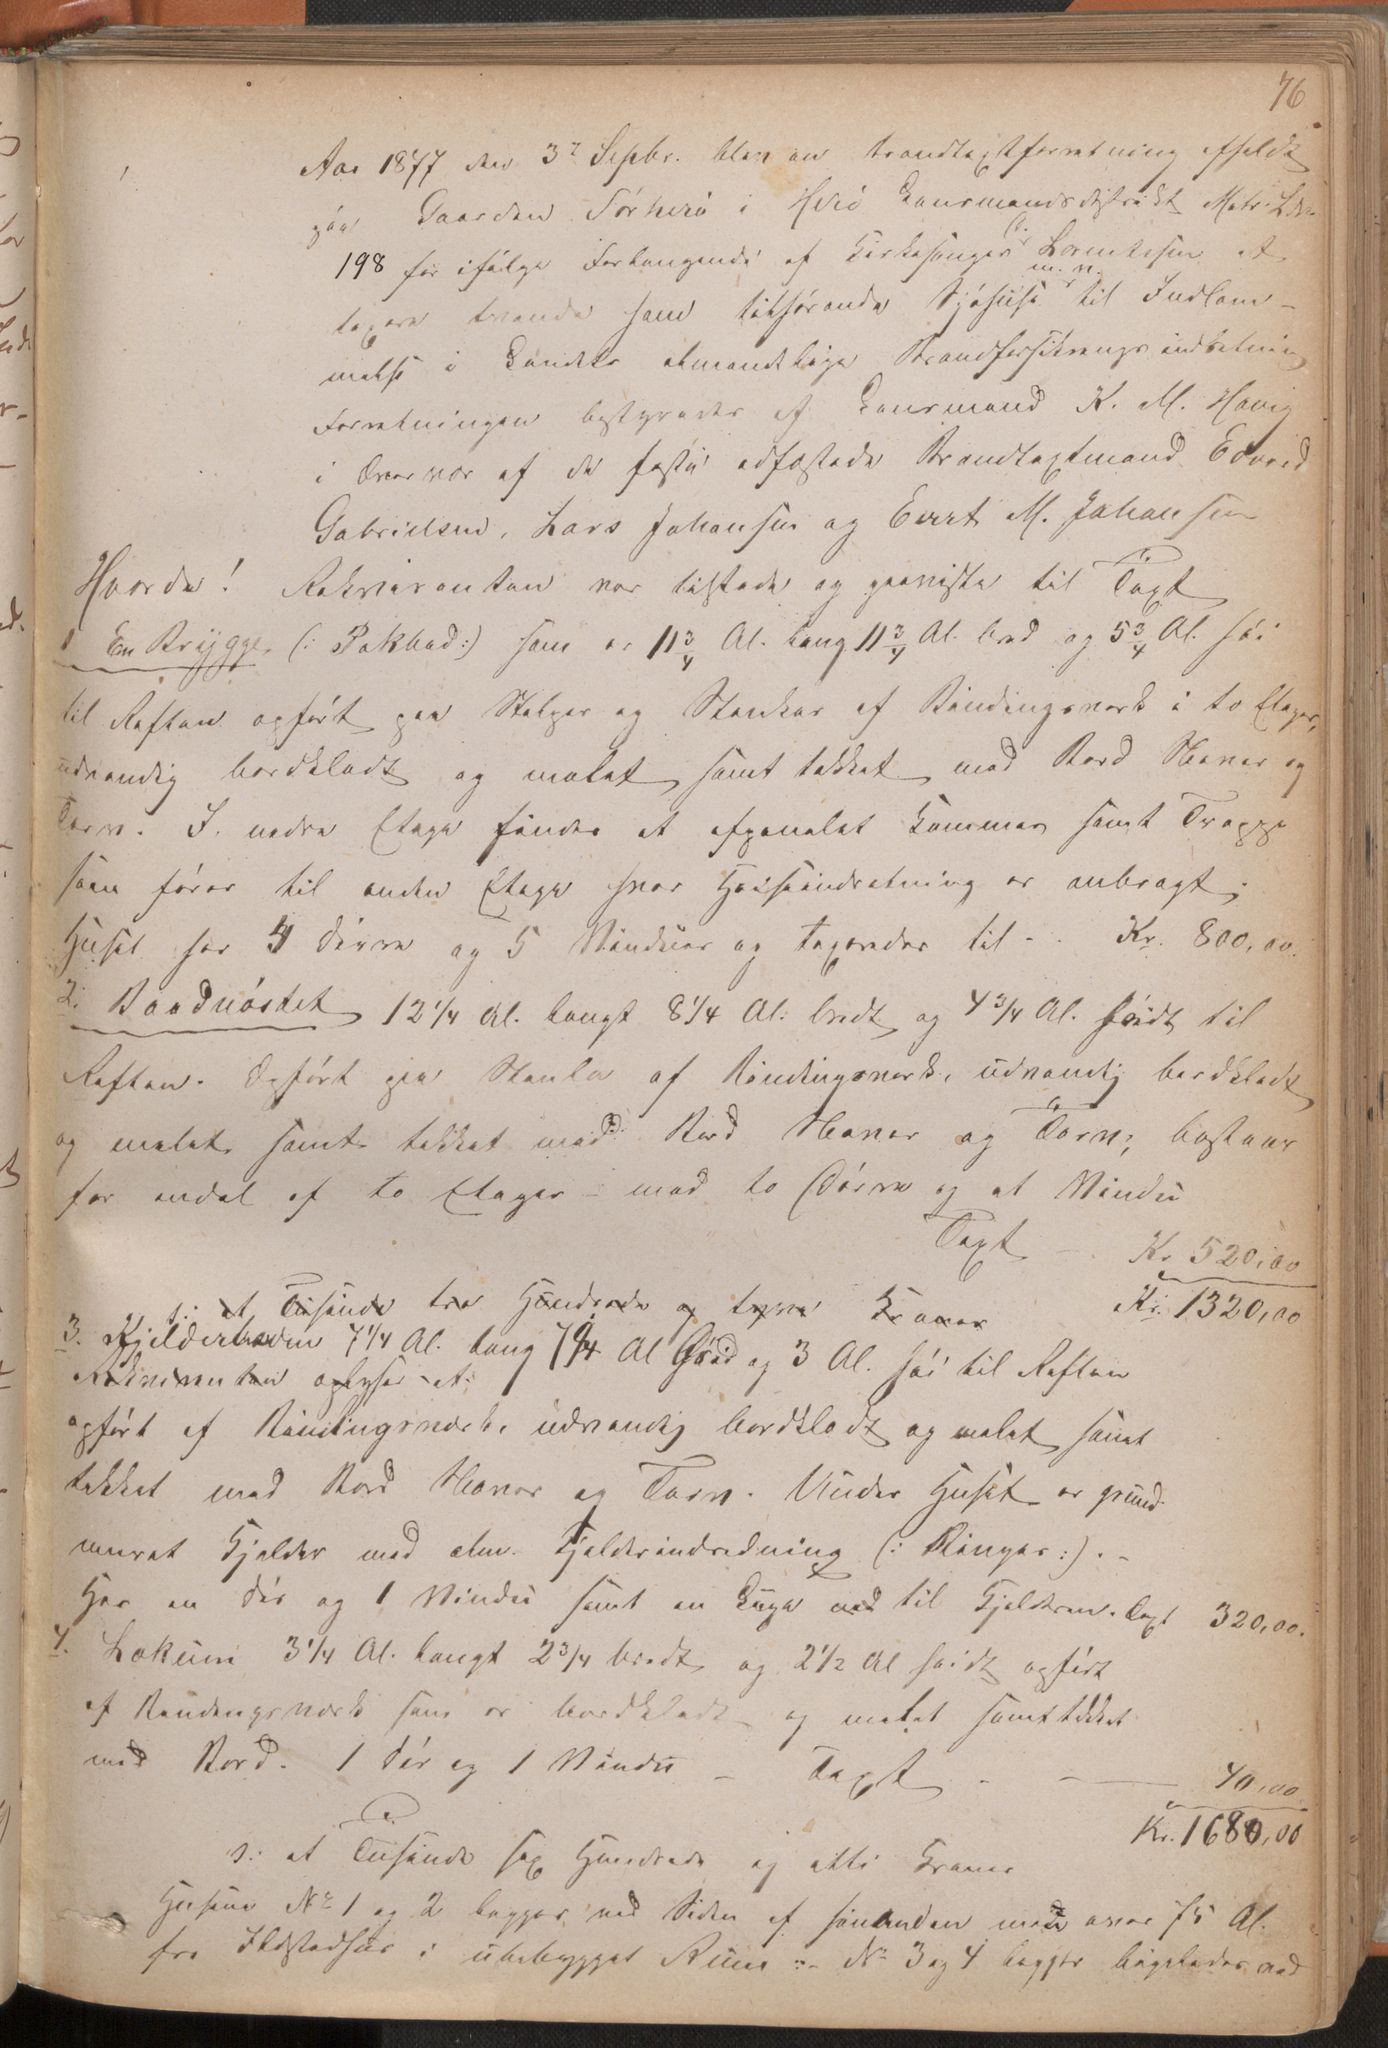 76
Aar 1877 den 3die Sepbr. blev en brandtaxtforretning afholdt
paa Gaarden Sörherö i Herö Lensmandsdistrikt Matr. L.No
198 for ifölge Forlangende af Kirkesanger Lorentzen at
m. v.
taxere trende ham tilhörende Sjöhuse til Indlem-
melse i Landets almindelige Brandforsikringsindretning
Forretningen bestyredes af Lensmand K. M. Havig
i Overvær af de fasta edfæstede Brandtaxtmænd Edvard
Gabrielsen, Lars Johansen og Evert M. Johansen
Hvorda! Rekvirenten var tilstede og paaviste til Taxt
1 En Brygge (: Pakbod:) som er 11 3/4 Al. lang 11 3/4 Al. bred og 5 3/4 Al. höi
til Raften opfört paa Stolper og Stænker af Bindingsverk i to Etager,
udvendig bordklædt og malet samt tækket med Bord Næver og
Torv. I nedre Etage findes et afpanelet Kammer samt Trappe
som förer til anden Etage hvor Heiseindretning er anbragt;
Huset har 4 Dörre og 5 Vinduer og taxeredes til - . Kr. 800,00.
2. Baadnöstet 12 1/4 Al. langt 8 1/4 Al. bredt og 4 3/4 Al. höidt til
Raften. Opfört paa Stenla af Bindingsverk, udvendig bordklædt
og malet samt tækket med Bord Næver og Torv; bestaar
for endel af to Etager - med to Dörre og et Vindu
Taxt - Kr 520,00
t: et Tusinde tre Hundrede og tyve Kroner Kr. 1320,00
3. Kjelderboden 7 1/4 Al. lang 7 1/4 Al Bred og 3 Al. höi til Raften
Rekvirenten oplyser at:
opfört af Bindingsverk, udvendig bordklædt og malet samt
tækket med Bord Næver og Torv. Under Huset er grund-
muret Kjelder med alm. Kjelderindredning (: Binger:). -
Har en Dör og 1 Vindu samt en Luge ned til Kjelderen. Taxt 320,00.
4. Lokum 3 1/4 Al. langt 2 3/4 bredt og 2 1/2 Al höidt opfört
af Bindingsverk som er bordklædt og malet samt tækket
med Bord. 1 Dör og 1 Vindu - Taxt - 40,00
Kr. 1680,00
s: et Tusinde sex Hundrede og otti Kroner
Husene No 1 og 2 ligger ved Siden af hinanden med over 75 Al.
fra Ildstedhus i ubebygget Rum - No 3 og 4 ligger ligeledes ved